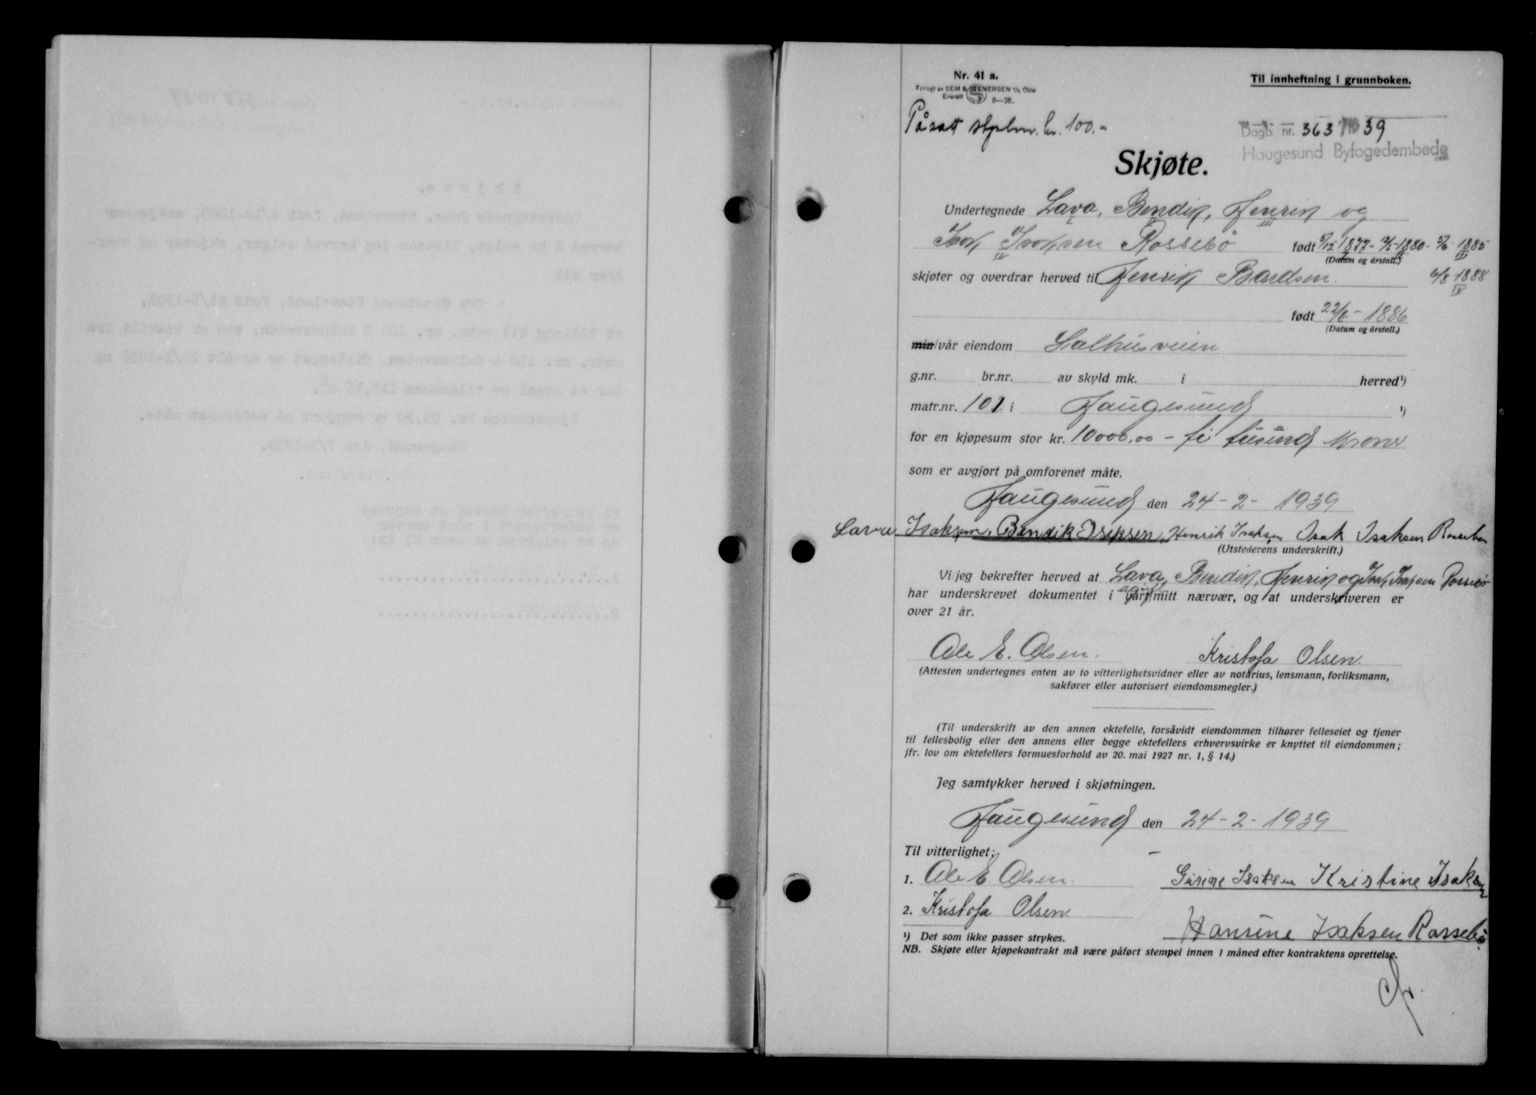 Nr. 41 a.
Forlagt av SEM & STENERSEN A/S, Oslo
Enerett S 8—38.
Til innheftning i grunnboken.
Påsatt stplm. kr. 100.-
Dagb. nr. 363 1939
Haugesund Byfogedembede
Skjøte.
Undertegnede Lava, Bendik, Henrik og
Isak Isaksen Rossebø født 1877 - 1880 - 1885
(Datum og årstall.)
skjøter og overdrar herved til Henrik Bardsen. 6/8 1888
født 22/6 - 1886
(Datum og årstall.)
min/vår eiendom Salhusveien
g.nr. br.nr. av skyld mk. i herred¹)
matr.nr. 101 i Haugesund ¹)
for en kjøpesum stor kr. 10000,00 - ti tusund kroner
som er avgjort på omforenet måte.
Haugesund den 24-2-1939
Lava Isaksen, Bendik Isaksen, Henrik Isaksen Isak Isaksen Rossebø
(Utstederens underskrift.)
Vi/jeg bekrefter herved at Lava, Bendik, Henrik og Isak Isaksen Rossebø
har underskrevet dokumentet i vårt/mitt nærvær, og at underskriveren er
over 21 år.
Ole E. Olsen. Kristofa Olsen.
(Attesten undertegnes enten av to vitterlighetsvidner eller av notarius, lensmann, forliksmann,
sakfører eller autorisert eiendomsmegler.)
(Til underskrift av den annen ektefelle, forsåvidt eiendommen tilhører felleseiet og tjener
til fellesbolig eller den annens eller begge ektefellers erhvervsvirke er knyttet til eiendommen;
jfr. lov om ektefellers formuesforhold av 20. mai 1927 nr. 1, § 14.)
Jeg samtykker herved i skjøtningen.
Haugesund den 24-2-1939
Til vitterlighet:
1. Ole E. Olsen. Gurine Isaksen Kristine Isaksen
2. Kristofa Olsen. Hansine Isaksen Rossebø
¹) Det som ikke passer strykes.
NB. Skjøte eller kjøpekontrakt må være påført stempel innen 1 måned efter kontraktens oprettelse.